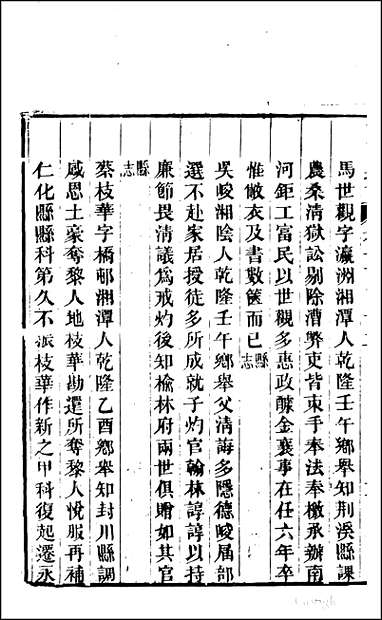 馬世觀字瀛洲湘潭人乾隆壬午鄉舉知荆溪縣課
農桑清獄訟剔除漕弊吏皆束手奉法奉檄承辦南
河鉅工富民以世觀多惠政醵金襄事在任六年卒
惟敝衣及書數篋而已縣志
吳峻湘陰人乾隆壬午鄉舉父清誨多隱德峻屆部
選不赴家居授徒多所成就子灼官翰林諄諄以持
廉節畏清議爲戒灼後知榆林府兩世俱贈如其官
縣志
蔡枝華字橋邨湘潭人乾隆乙酉鄉舉知封川縣調
感恩土豪奪黎人地枝華勘還所奪黎人悅服再補
仁化縣縣科第久不振枝華作新之甲科復起遷永